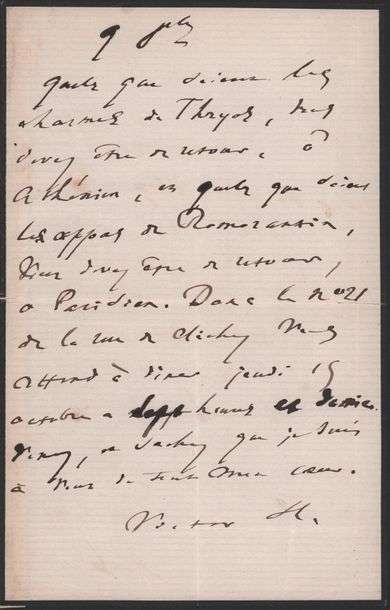 9 
quels que soient les
charmes de Thryos, vous
devez être de retour, ô
Athénien, et quels que soient
les appas de Romorantin,
vous devez être de retour,
ô Parisien. Donc le n° 21
de la rue de Clichy vous
attend à dîner jeudi 15
octobre à sept heures et demie.
Venez, et sachez que je suis
à vous de tout mon cœur.
Victor H.